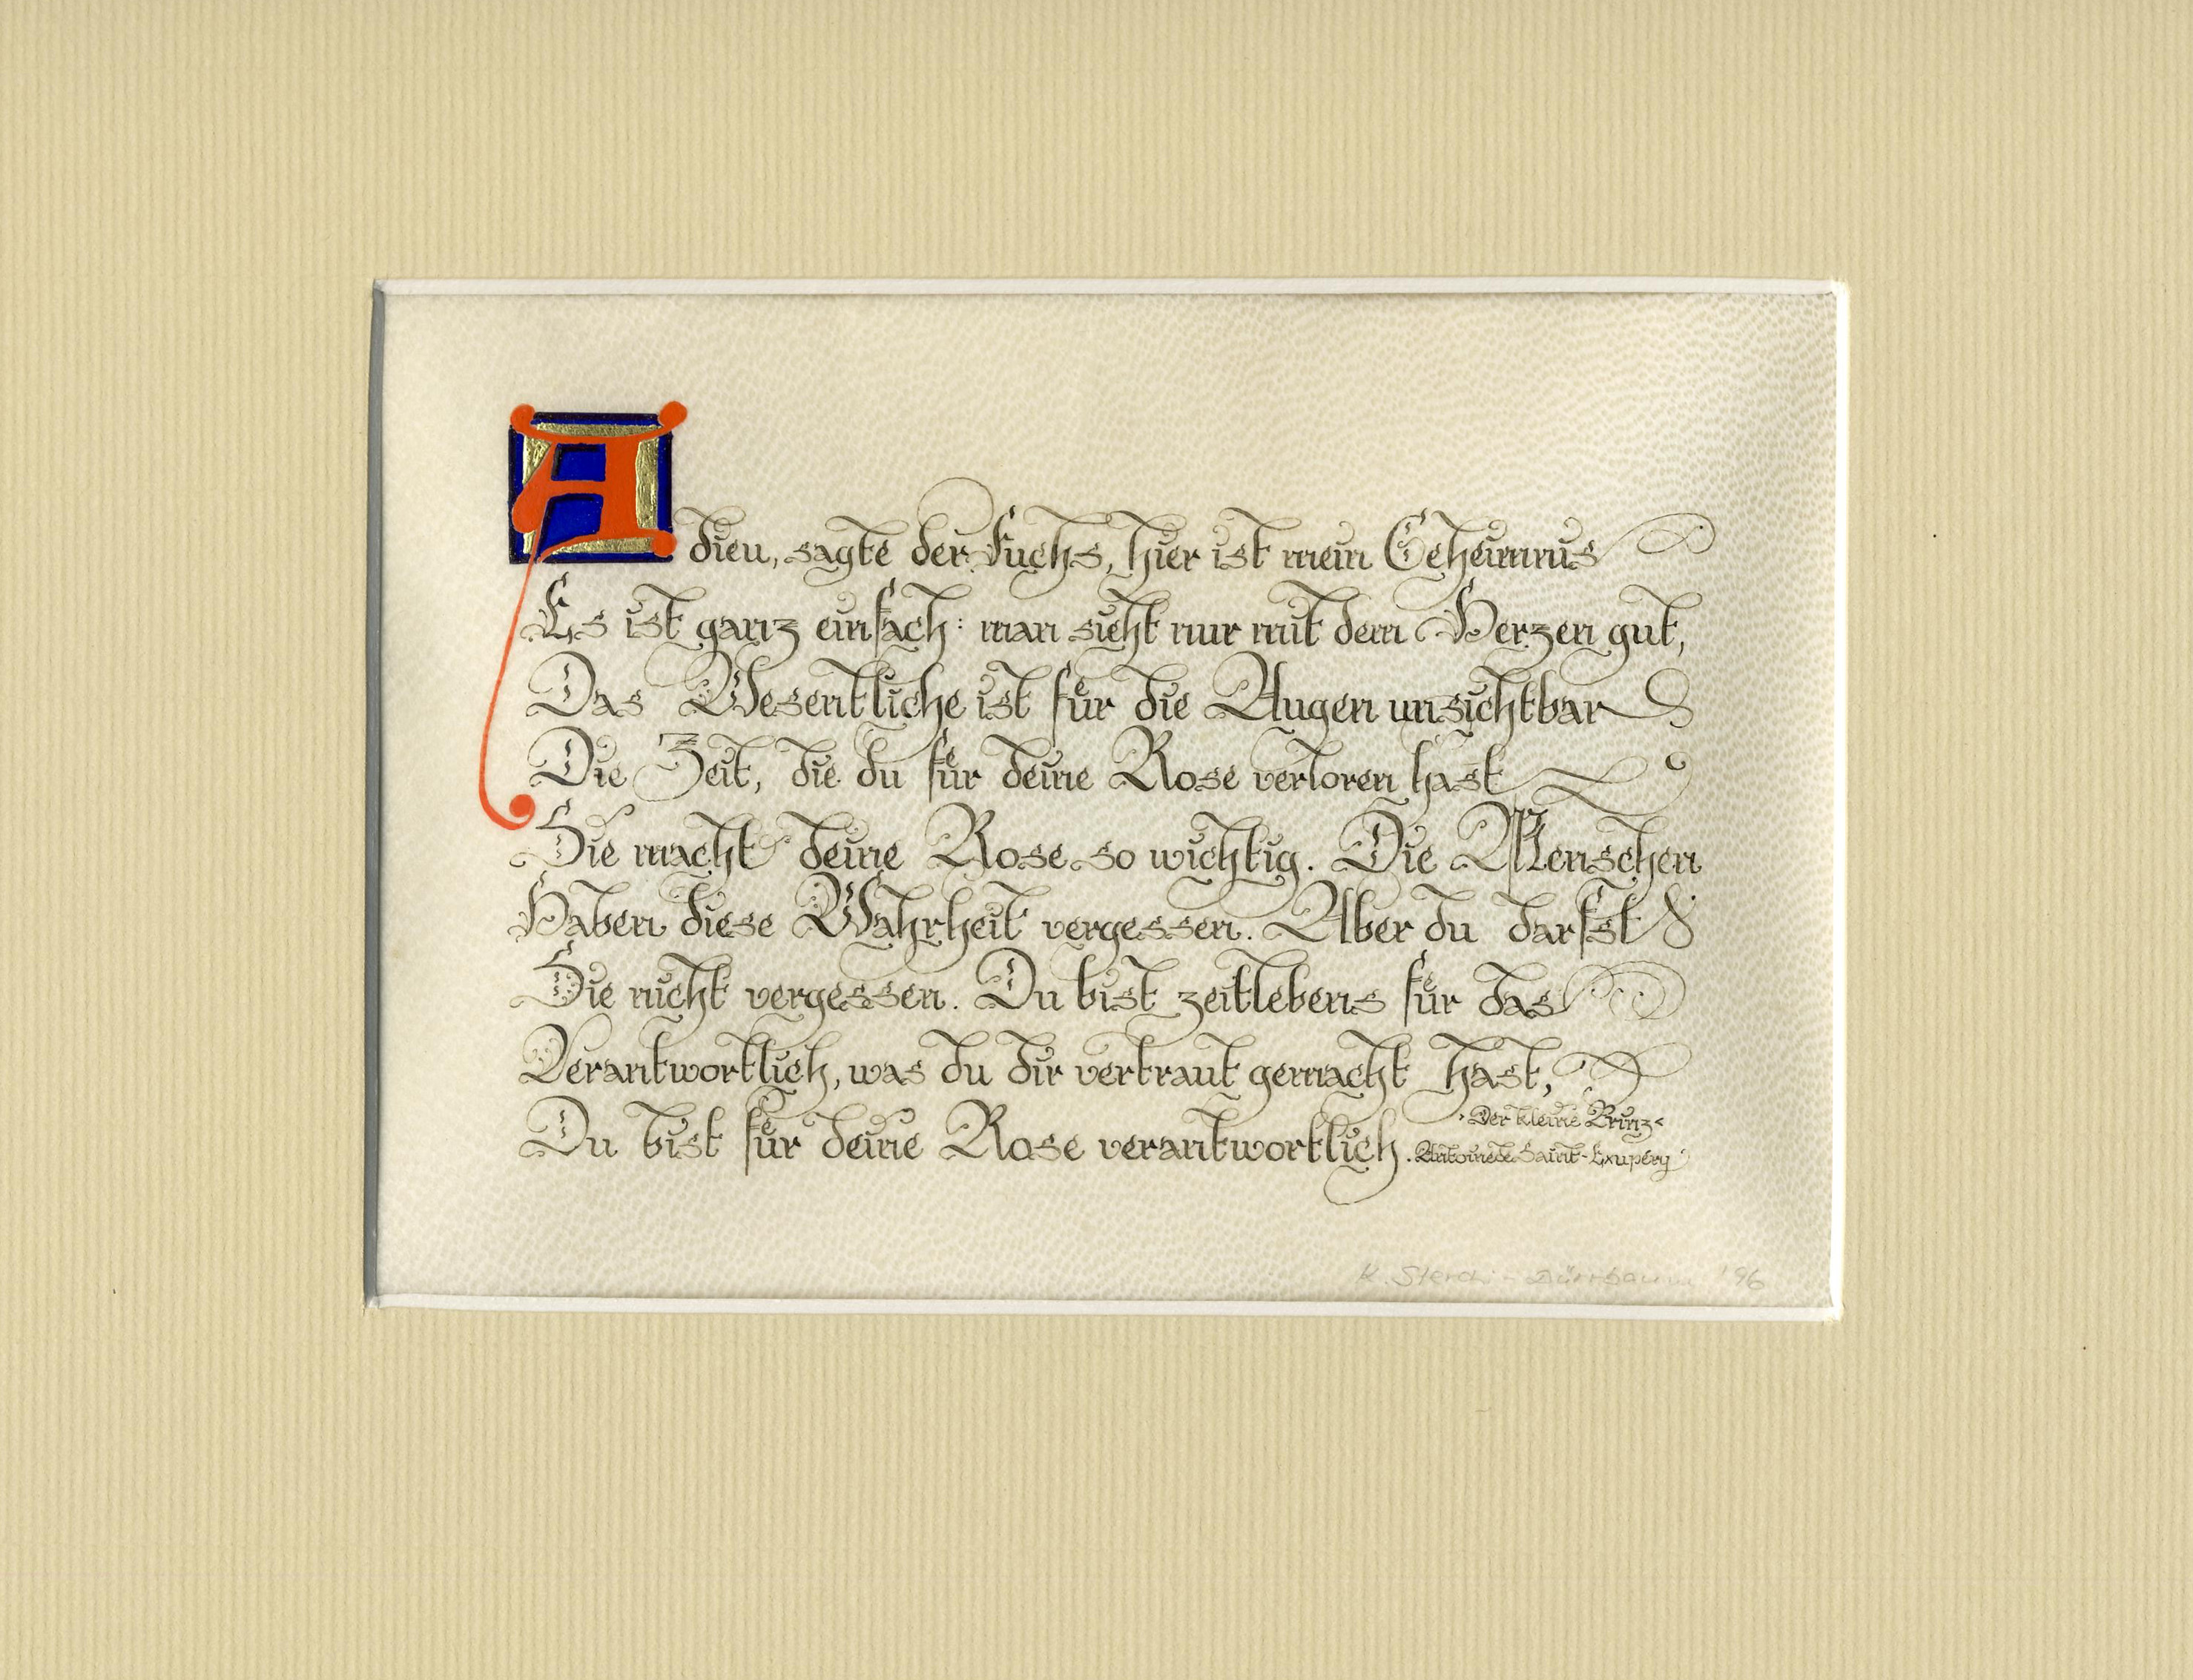 Adieu, sagte der Fuchs, hier ist mein Geheimnis
Es ist ganz einfach: man sieht nur mit dem Herzen gut,
Das Wesentliche ist für die Augen unsichtbar
Die Zeit, die du für deine Rose verloren hast
Sie macht deine Rose so wichtig. Die Menschen
Haben diese Wahrheit vergessen. Aber du darfst
Sie nicht vergessen. Du bist zeitlebens für das
Verantwortlich, was du dir vertraut gemacht hast,
Du bist für deine Rose verantwortlich.
›Der kleine Prinz‹
Antoine de Saint-Exupéry
K. Sterchi-Dürrbaum '96